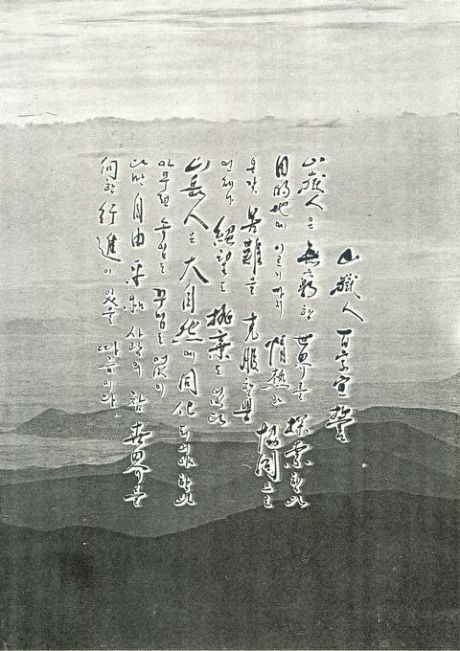 山嶽人 百字宣誓
山嶽人은 無窮한 世界를 探索한다
目的地에 이르기까지 情熱과 協同으로
온갖 苦難을 克服할뿐
언제나 絶望도 抛棄도 없다
山岳人은 大自然에 同化되어야 한다
아무런 속임도 꾸밈도 없이
다만 自由 平和 사랑의 참 世界를
向한 行進이 있을 따름이다.